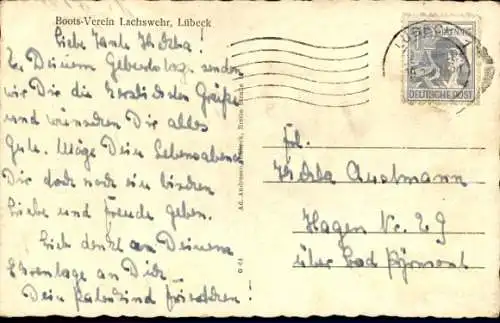 Boots-Verein Lachswehr, Lübeck
Liebe Tante Thekla!
Zu Deinem Geburtstage senden
wir Dir die herzlichsten Grüße
und wünschen Dir alles
Gute. Möge Dein Lebensabend
Dir doch noch ein bischen
Liebe und Freude geben.
Sich denkt an Deinem
Ehrentage an Dich
Dein Patenkind
Ad. Andresen, Lübeck, Breite Straße
G 64
LÜBECK
PFENNIG
DEUTSCHE POST
Frl.
Thekla Austmann
Hagen Nr. 29
über Bad Pyrmont